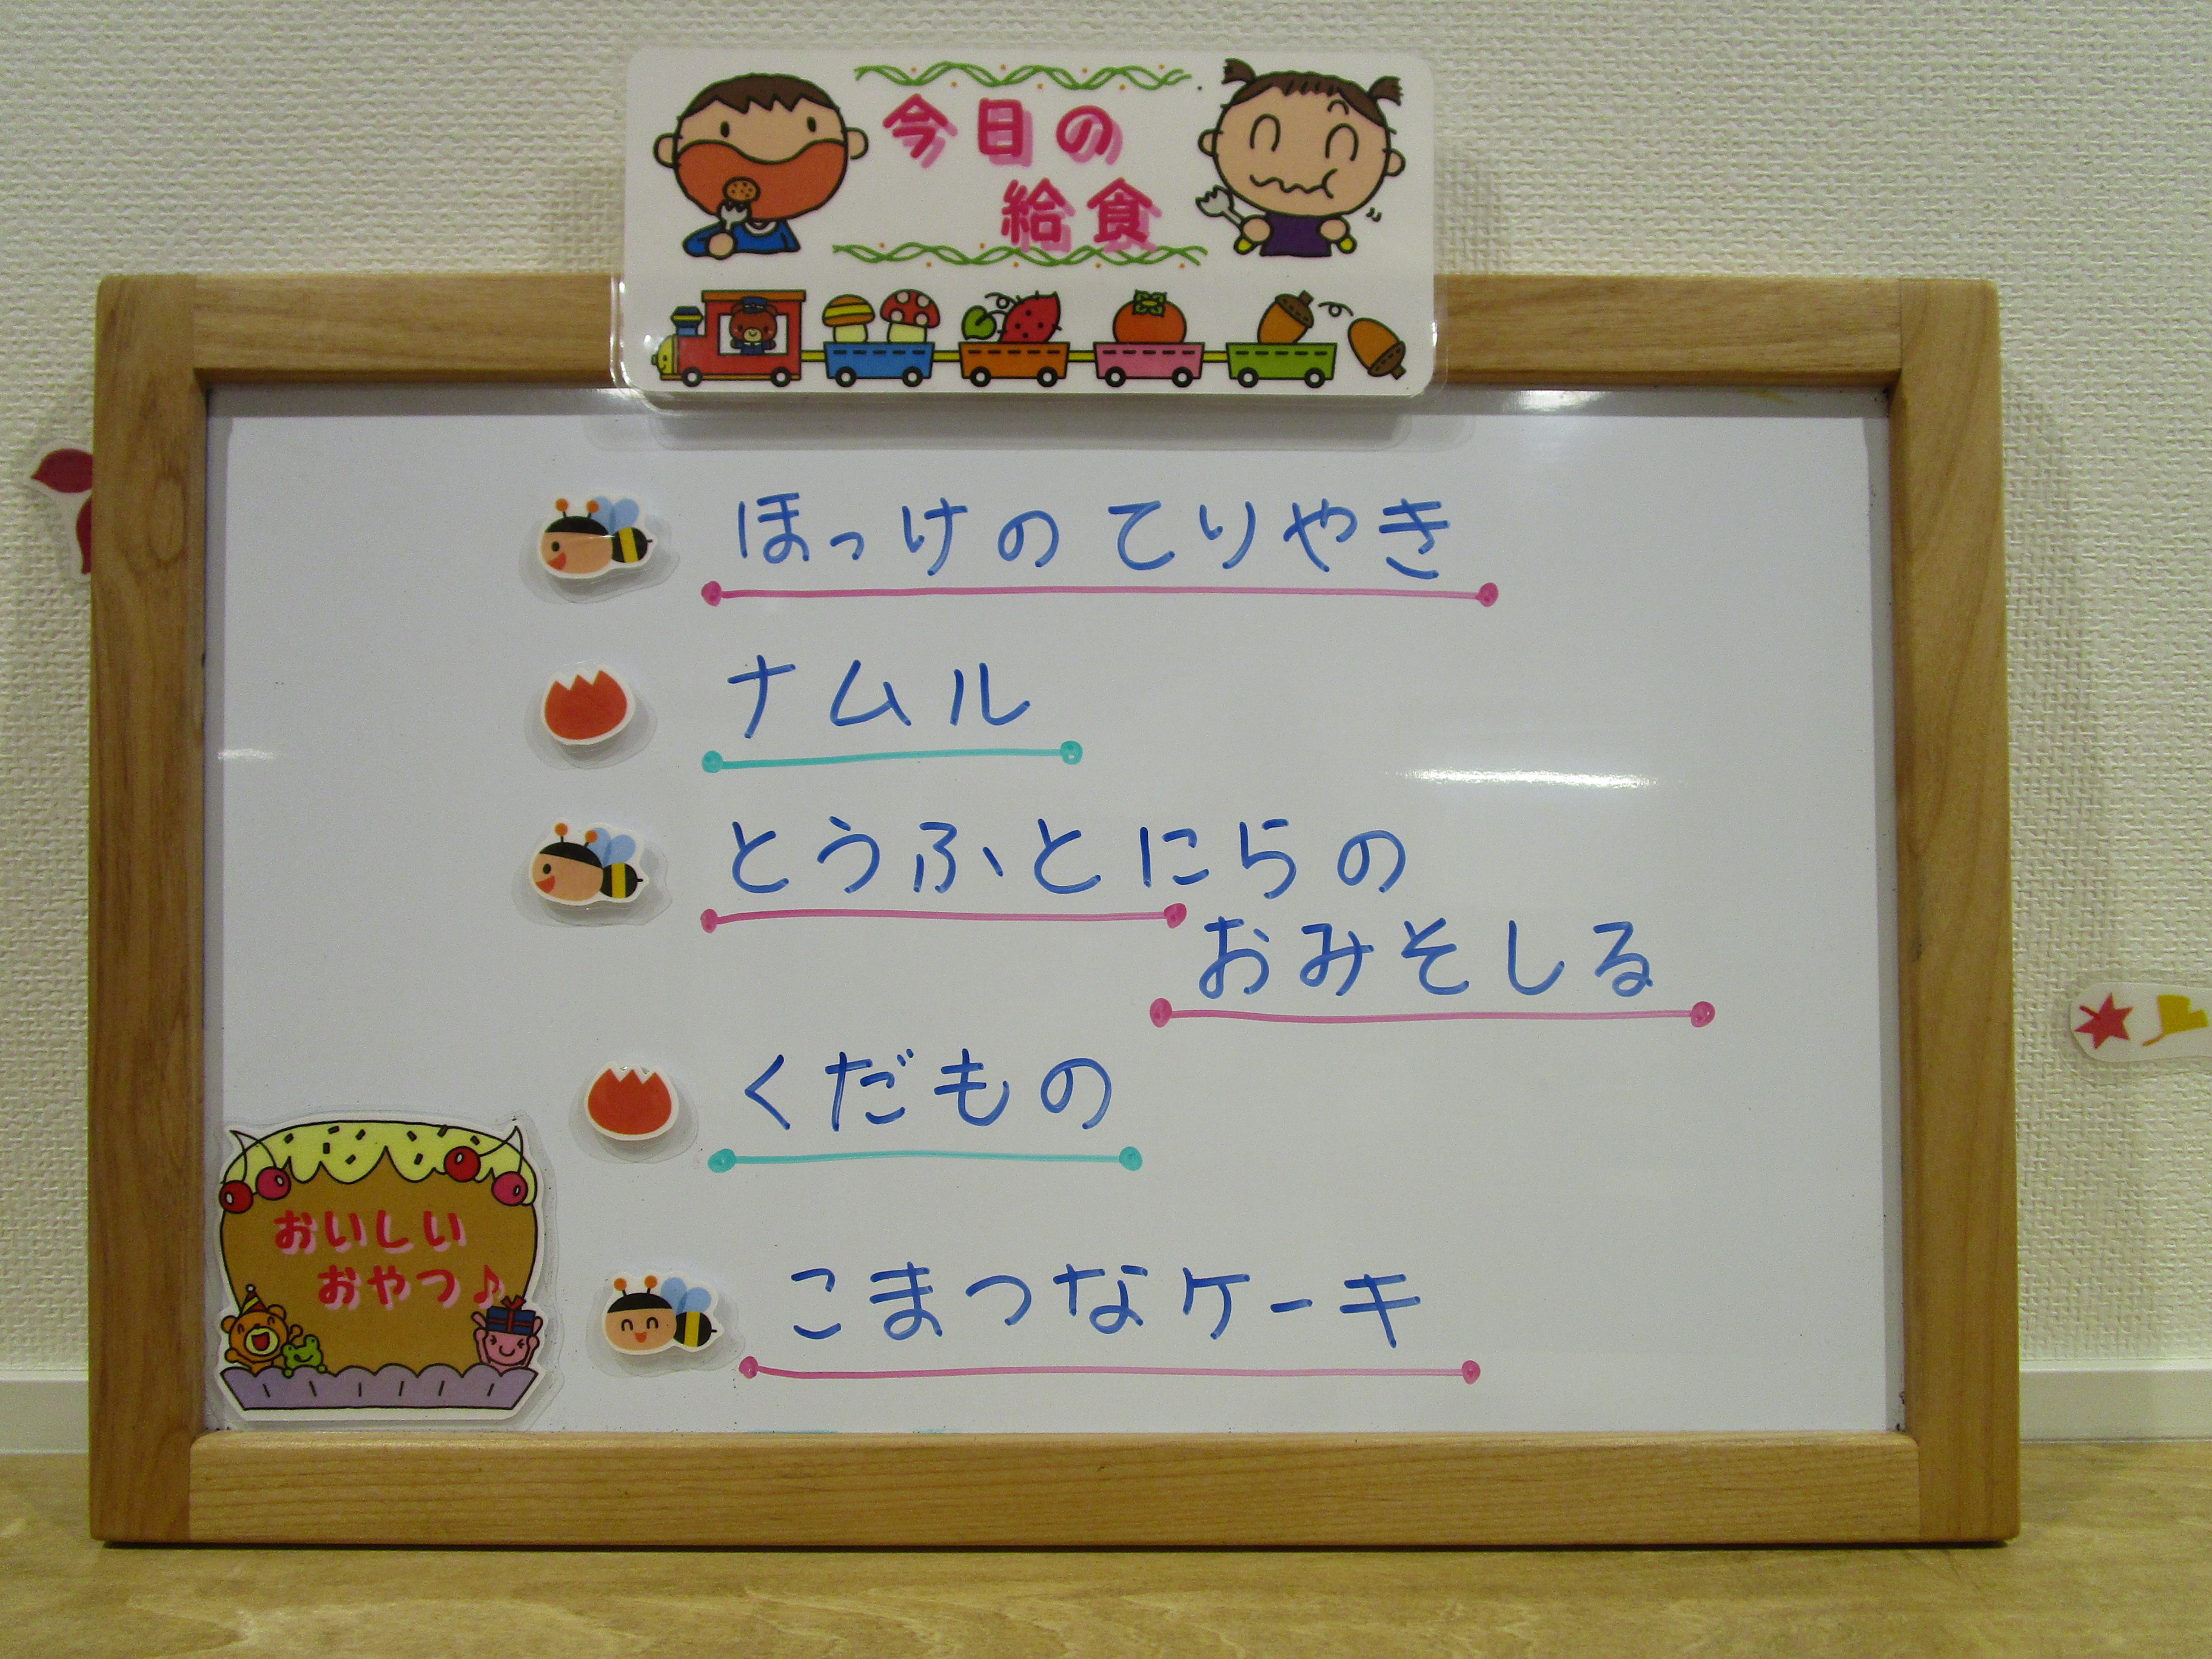 今日の
給食
ほっけのてりやき
ナムル
とうふとにらの
おみそしる
くだもの
おいしい
おやつ♪
こまつなケーキ